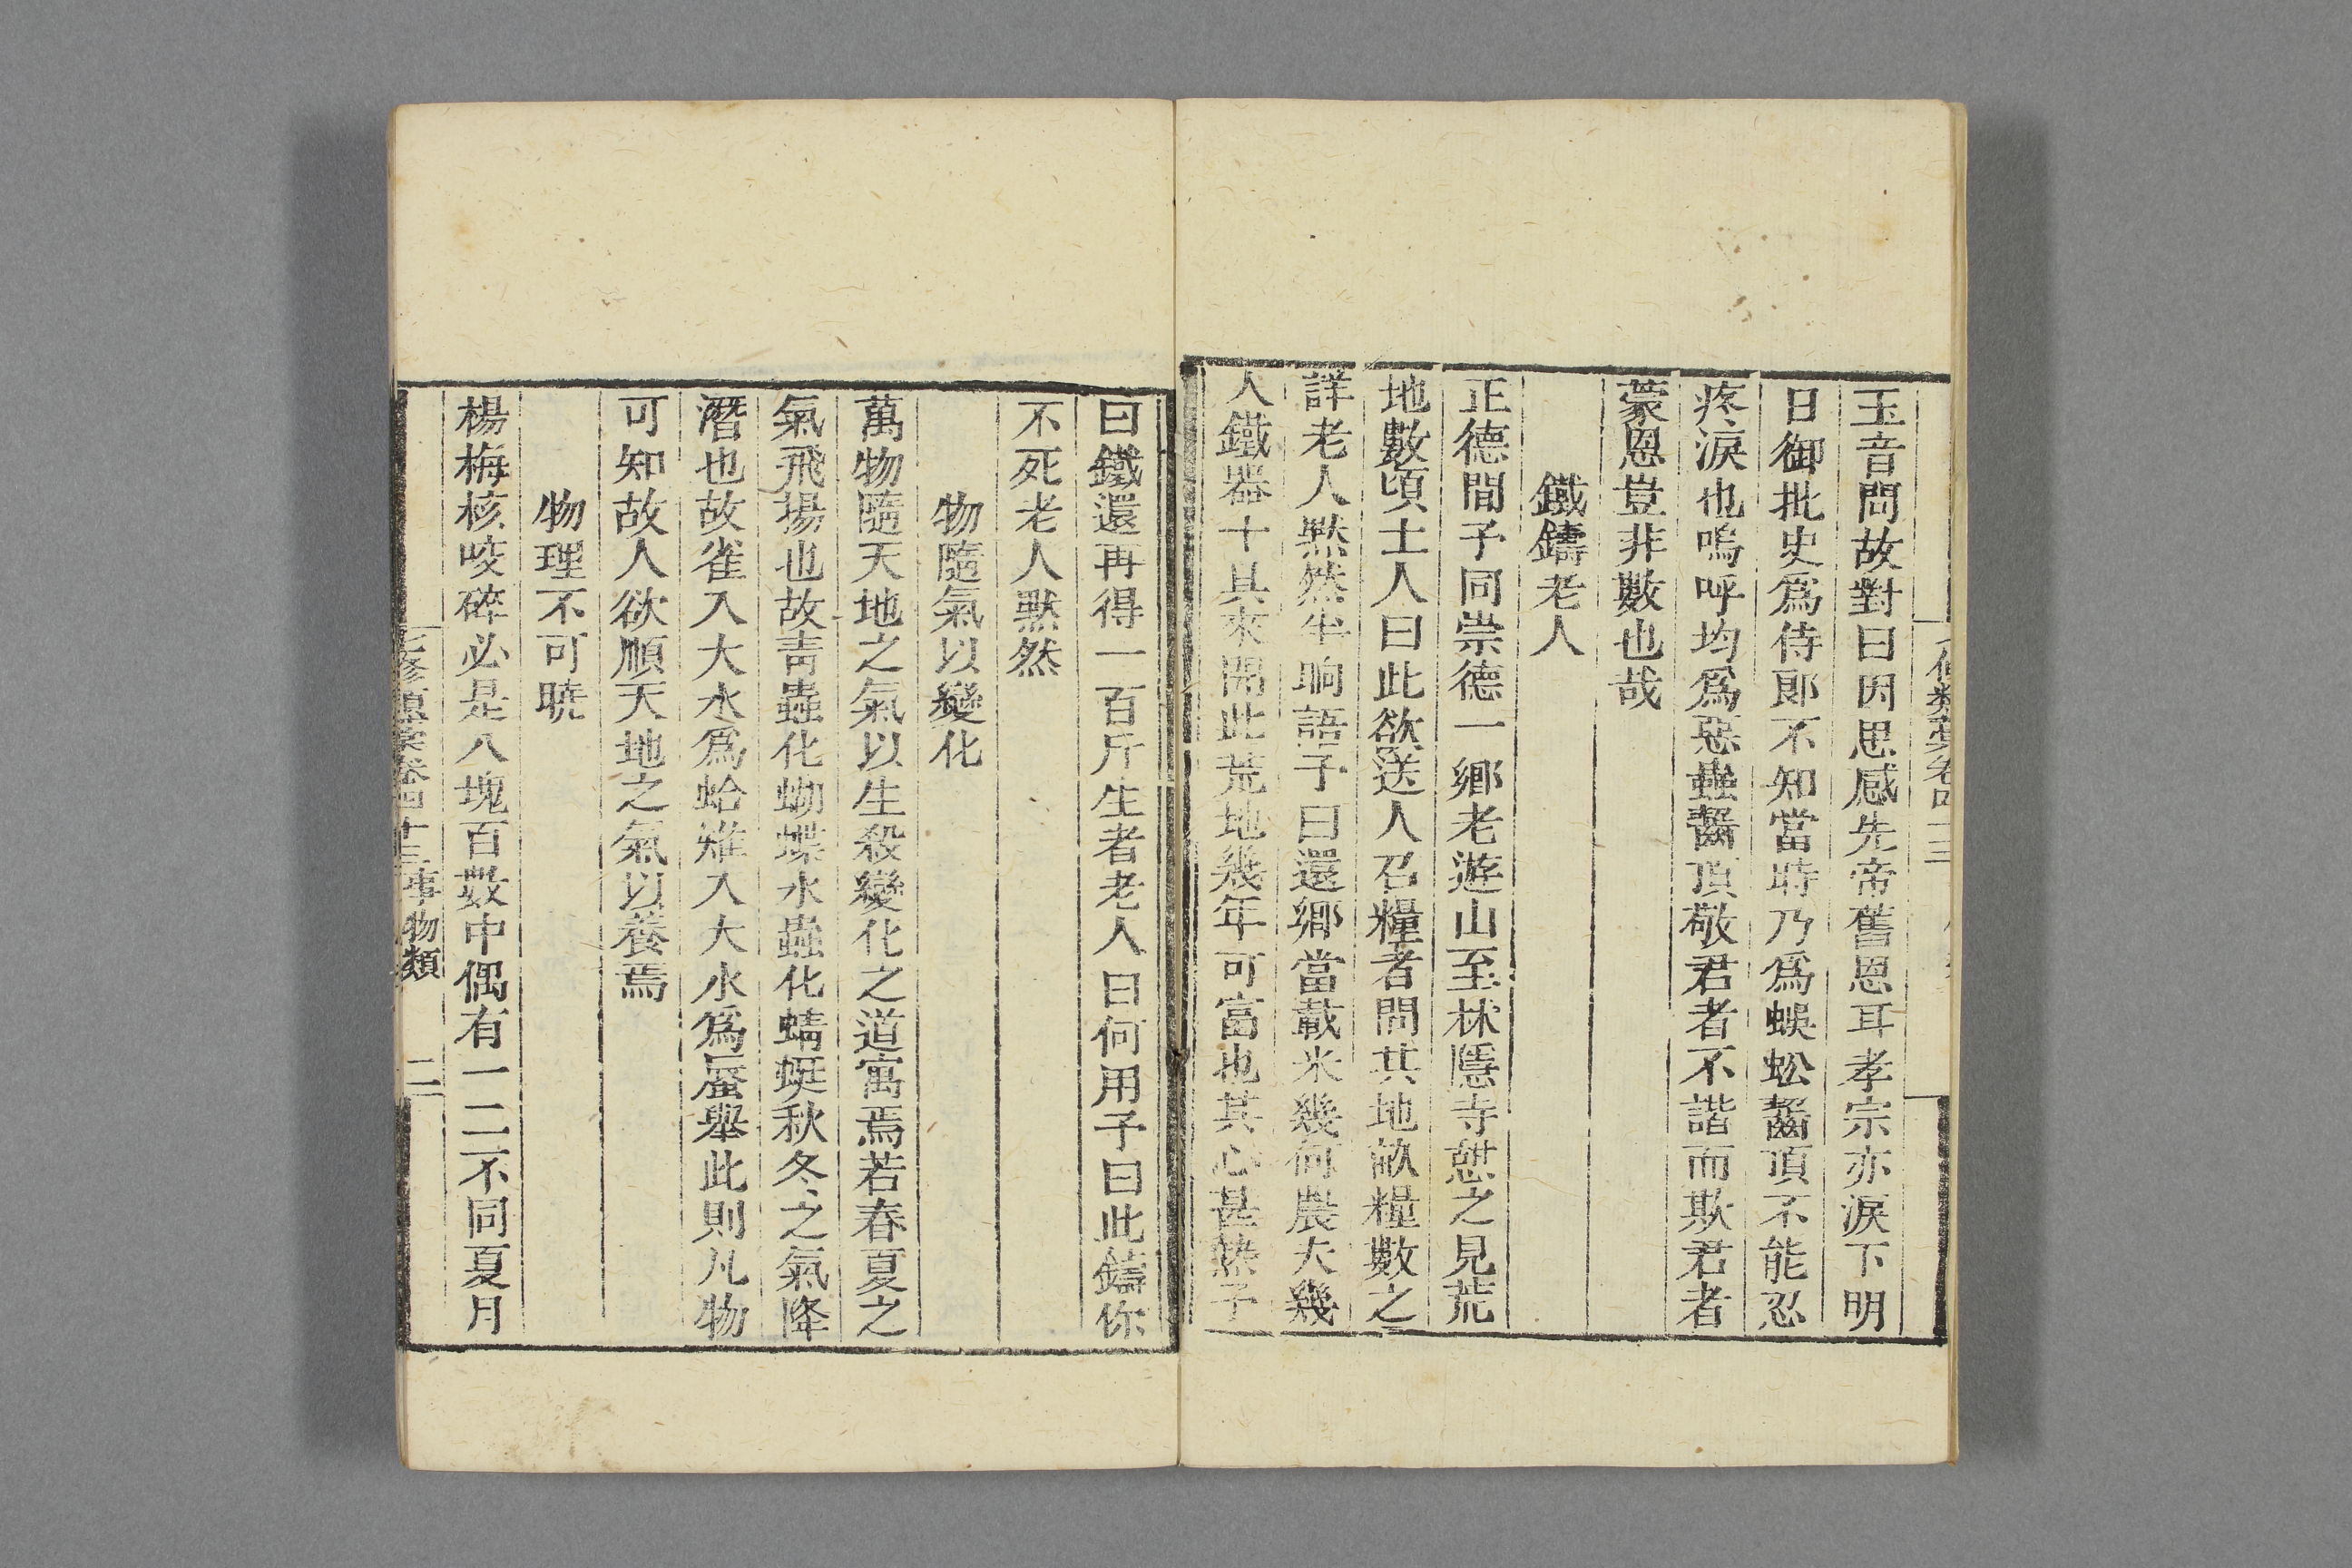 玉音問故對曰因思感先帝舊恩耳孝宗亦淚下明
日御批史爲侍郎不知當時乃爲蜈蚣齧頂不能忍
疼淚也嗚呼均爲惡蟲齧頂敬君者不諧而欺君者
蒙恩豈非數也哉
鐵鑄老人
正德間予同崇德一鄉老遊山至林隱寺憇之見荒
地數頃士人曰此欲送人召糧者問其地畝糧數之
詳老人默然半晌語予曰還鄉當載米幾何農夫幾
人鐵器十具來開此荒地幾年可富也其心甚熱予
曰鐵還再得一百斤生者老人曰何用予曰此鑄你
不死老人默然
物隨氣以變化
萬物隨天地之氣以生殺變化之道寓焉若春夏之
氣飛揚也故青蟲化蝴蝶水蟲化蜻蜓秋冬之氣降
潛也故雀入大水爲蛤雉入大水爲蜃舉此則凡物
可知故人欲順天地之氣以養焉
物理不可曉
楊梅核咬碎必是八塊百數中偶有一二不同夏月
七修類藁卷四十三事物類 二